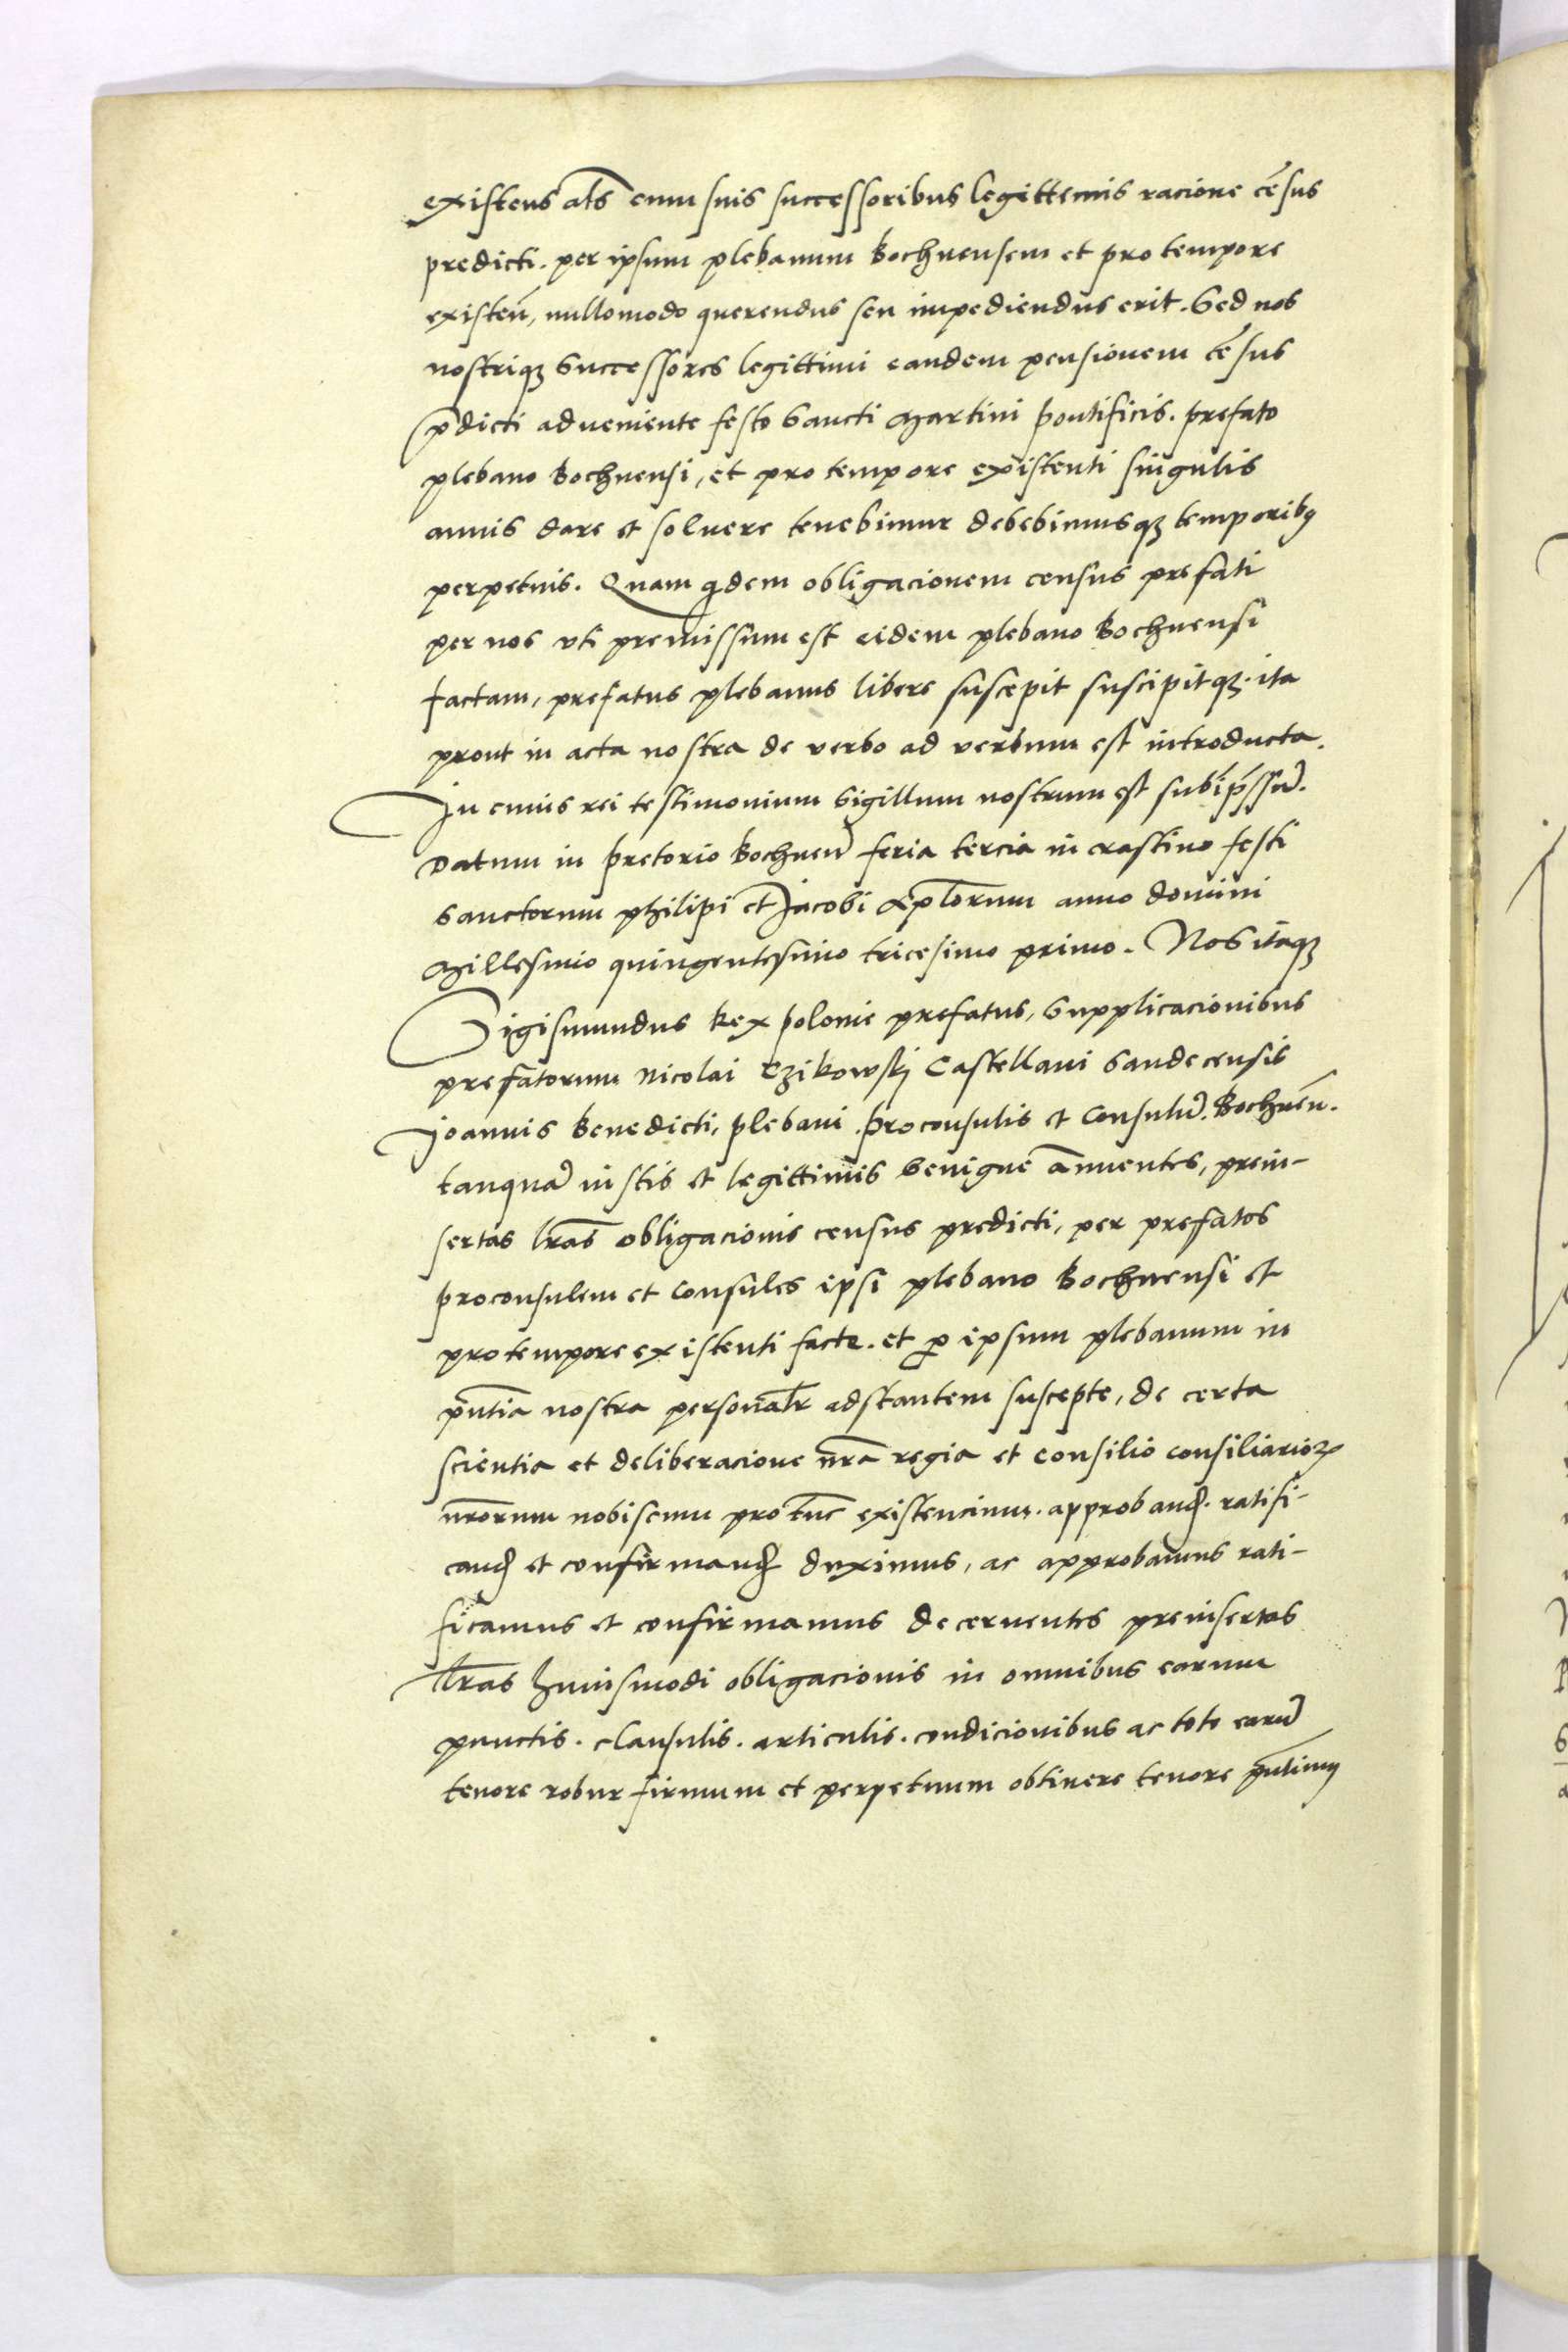 existens al̃s cum suis successoribus legittemis racione cẽsus
predicti. per ipsum plebanum Bochnensem et pro tempore
existeñ, nullomodo querendus seu impediendus erit. Sed nos
nostriqꝫ Successores legittimi eandem pensionem cẽsus
p̃dicti adveniente festo Sancti Martini Pontificis. prefato
plebano Bochnensi, et pro tempore existenti singulis
annis dare et solvere tenebimur debebimusqꝫ temporibꝰ
perpetuis. Quam qͥdem obligacionem census prefati
per nos uti premissum est eidem plebano Bochnensi
factam, prefatus plebanus libere suscepit suscipitqꝫ. ita
prout in acta nostra de verbo ad verbum est introducta.
In cuius rei testimonium Sigillum nostrum est subĩp̃ssũ.
Datum in Pretorio Bochneñ feria tercia in crastino festi
Sanctorum Philipi et Jacobi Ap̃lorum anno domini
Millesimo quingentesimo tricesimo primo. Nos itaqꝫ
Sigismundus Rex Polonie prefatus, Supplicacionibus
prefatorum Nicolai Czikowskj Castellani Sandecensis
Joannis Benedicti, Plebani. Proconsulis et Consulũ. Bochneñ.
tanquã iustis et legittimis benigne annuentes, prein-
sertas l̃ras obligacionis census predicti, per prefatos
Proconsulem et Consules ipsi plebano Bochnensi et
pro tempore existenti facte. et ꝑ ipsum plebanum in
p̃ntia nostra personal̃r adstantem suscepte, de certa
scientia et deliberacione nr̃a regia et consilio consiliarioꝝ
nr̃orum nobiscum pro tũc existencium. approbanď. ratifi-
canď et confirmanď duximus, ac approbamus rati-
ficamus et confirmamus decernentes preinsertas
l̃ras huiusmodi obligacionis in omnibus earum
punctis. clausulis. articulis. condicionibus ac toto earũ
tenore robur firmum et perpetuum obtinere tenore p̃ntium